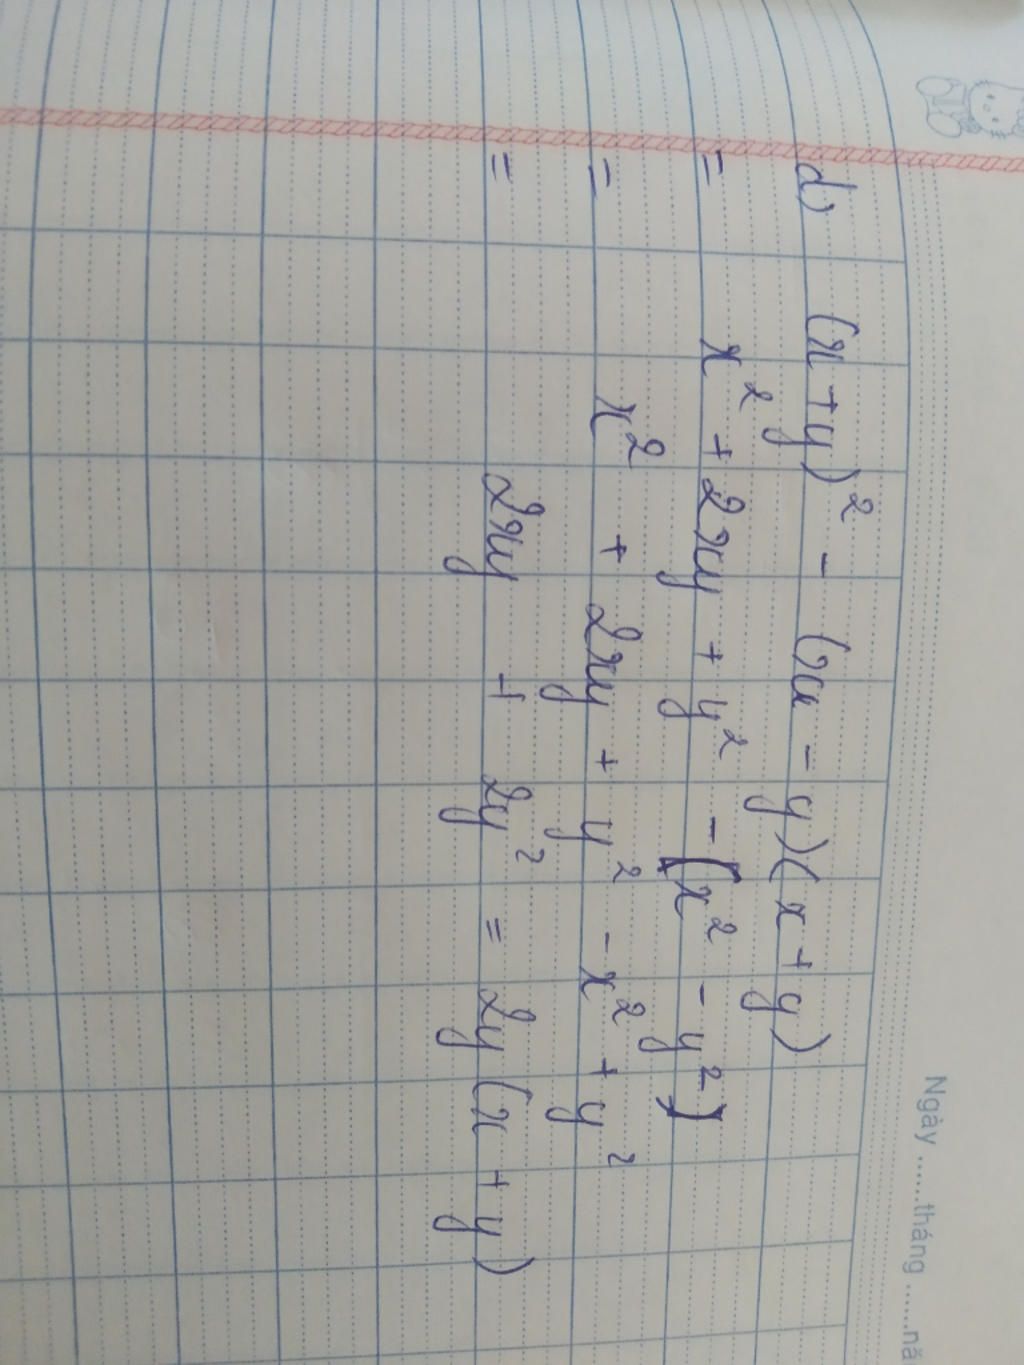 Ngày ......tháng ......nă
d) (x + y)² - (x - y)(x + y)
= x² + 2xy + y² - (x² - y²)
= x² + 2xy + y² - x² + y²
= 2xy + 2y² = 2y(x + y)